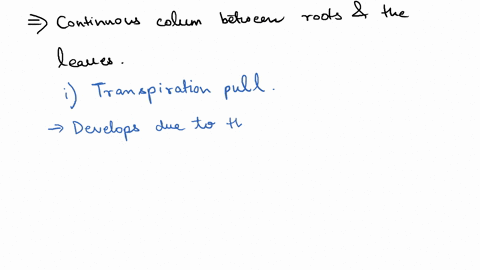 ⇒ Continuous colum between roots & the
leaves.
i) Transpiration pull.
→ Develops due to th